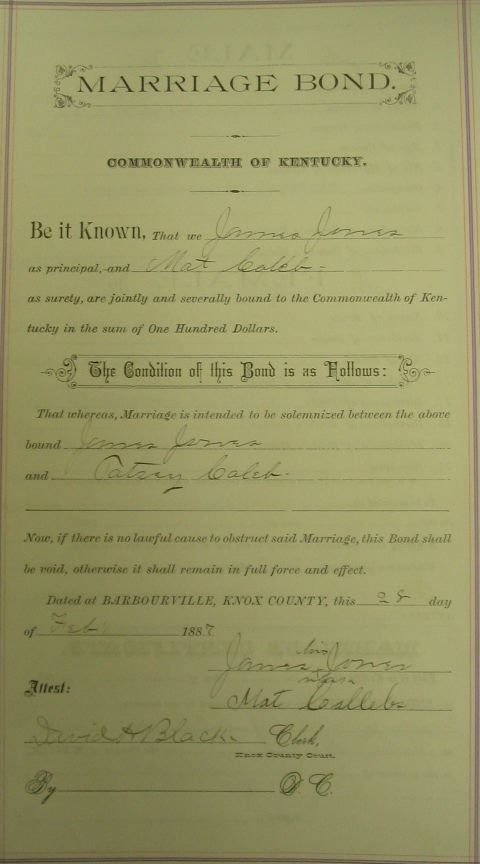 MARRIAGE BOND.
COMMONWEALTH OF KENTUCKY.
Be it Known, That we James Jones
as principal, and Mat Caleb
as surety, are jointly and severally bound to the Commonwealth of Ken-
tucky in the sum of One Hundred Dollars.
The Condition of this Bond is as Follows:
That whereas, Marriage is intended to be solemnized between the above
bound James Jones
and Patsey Caleb
Now, if there is no lawful cause to obstruct said Marriage, this Bond shall
be void, otherwise it shall remain in full force and effect.
Dated at BARBOURVILLE, KNOX COUNTY, this 28 day
of Feb 1887
his
James Jones
mark
Attest:
Mat Callebs
David H Black Clerk,
Knox County Court.
By D. C.